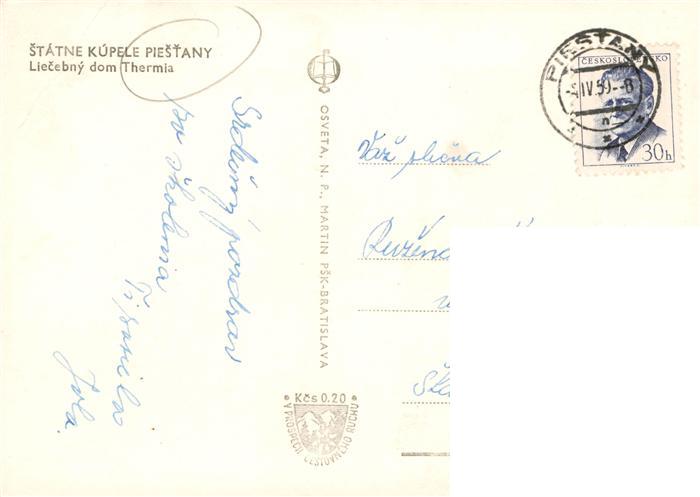 ŠTÁTNE KÚPELE PIEŠŤANY
Liečebný dom Thermia
Srdečný pozdrav
zo školenia
Ti posiela
Jola.
OSVETA, N. P., MARTIN PŠK-BRATISLAVA
Kčs 0.20
V PROSPECH CESTOVNÉHO RUCHU
PIEŠŤANY
-4.IV.59.-8
ČESKOSLOVENSKO
30h
Važ. slečna
Ružena